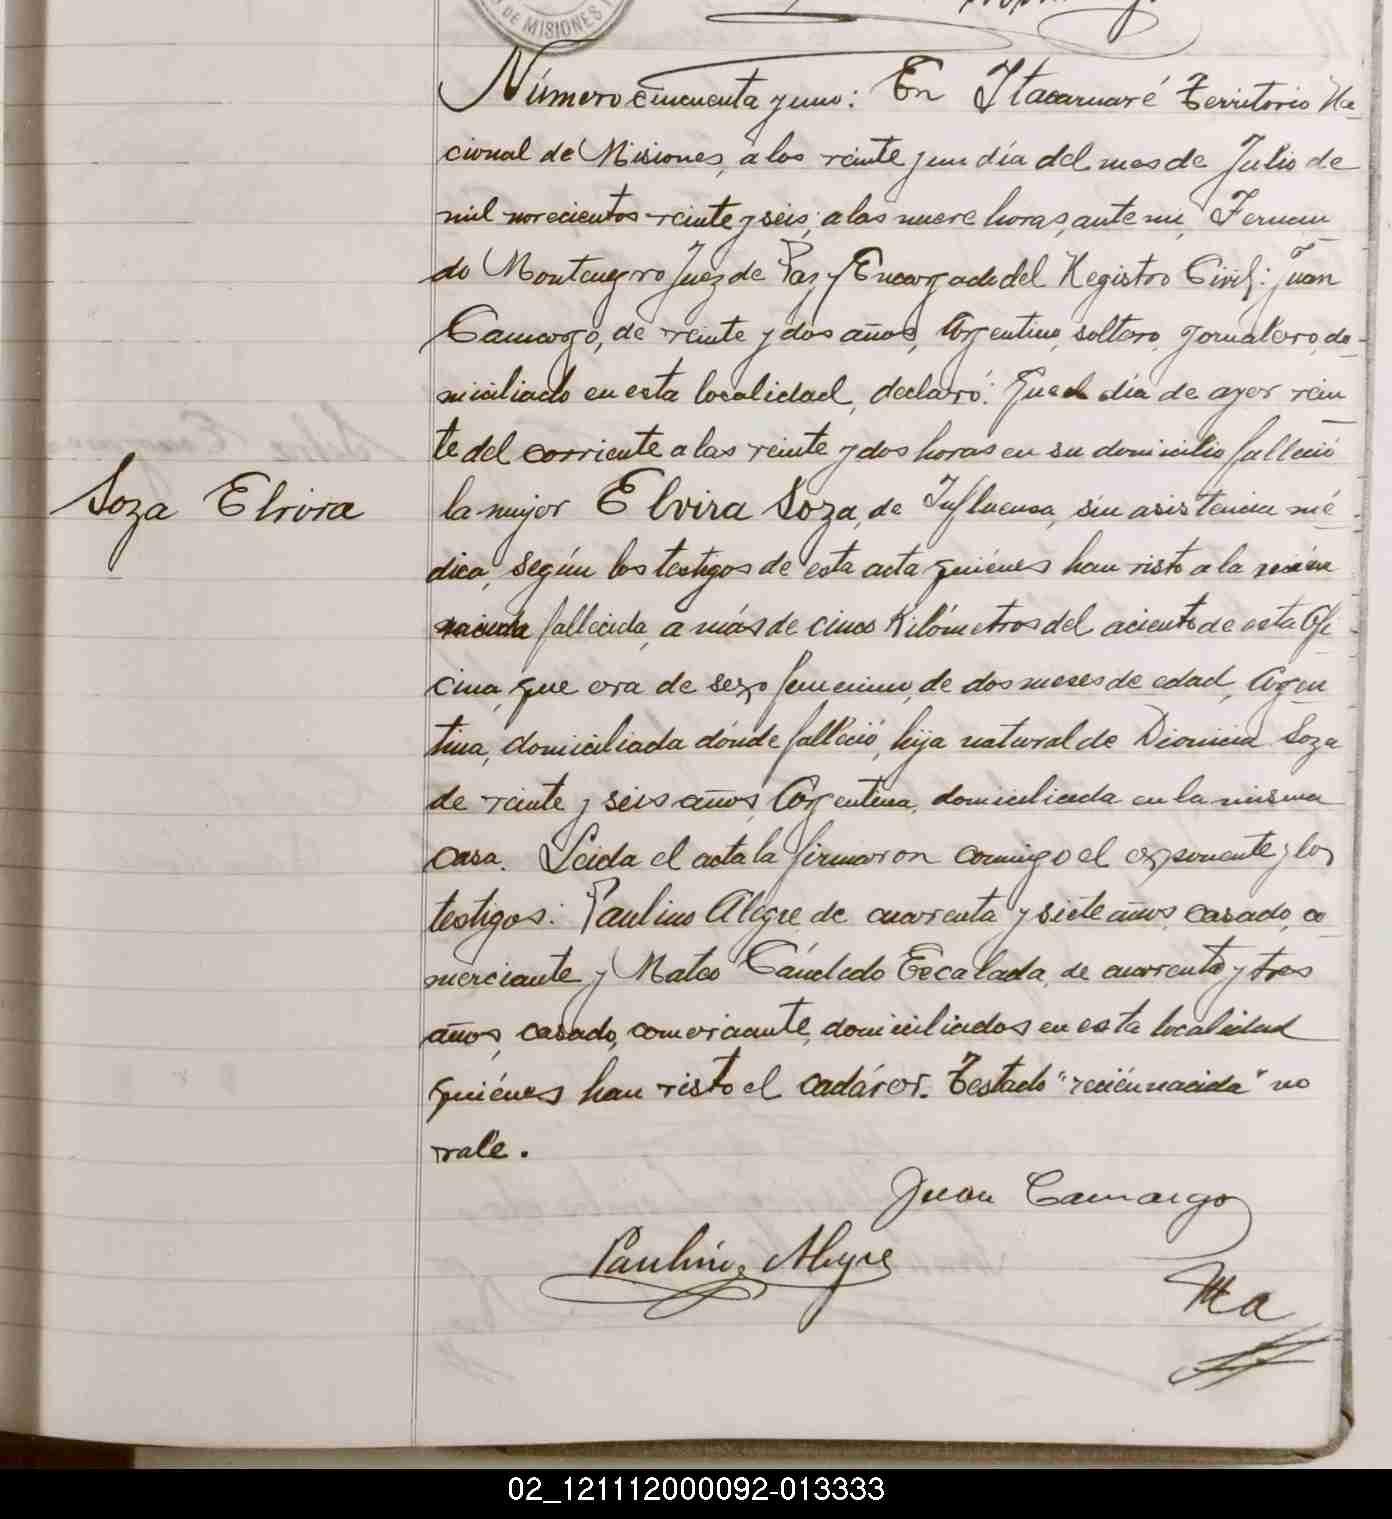 DE MISIONES
Número cincuenta y uno: En Itacaruaré Territorio Na-
cional de Misiones, a los veinte y un día del mes de Julio de
mil novecientos veinte y seis, a las nueve horas, ante mi, Fernan
do Montenegro Juez de Paz y Encargado del Registro Civil: Juan
Camargo, de veinte y dos años, Argentino, soltero, jornalero, do-
miciliado en esta localidad, declaró: Que el día de ayer vein
te del corriente a las veinte y dos horas en su domicilio falleció
Soza Elvira
la mujer Elvira Soza, de Influensa, sin asistencia mé-
dica, según los testigos de esta acta quiénes han visto a la recién
nacida fallecida, a más de cinco Kilómetros del aciento de esta Ofi-
cina, que era de sexo femenino, de dos meses de edad, Argen
tina, domiciliada dónde falleció, hija natural de Dionicia Soza
de veinte y seis años, Argentina, domiciliada en la misma
casa. Leida el acta la firmaron conmigo el exponente y los
testigos: Paulino Alegre de cuarenta y siete años, casado, co-
merciante y Mateo Cándido Escalada, de cuarenta y tres
años, casado, comerciante, domiciliados en esta localidad
quiénes han visto el cadáver. Testado "recién nacida" no
vale.
Juan Camargo
Paulino Alegre
Ma
02_121112000092-013333